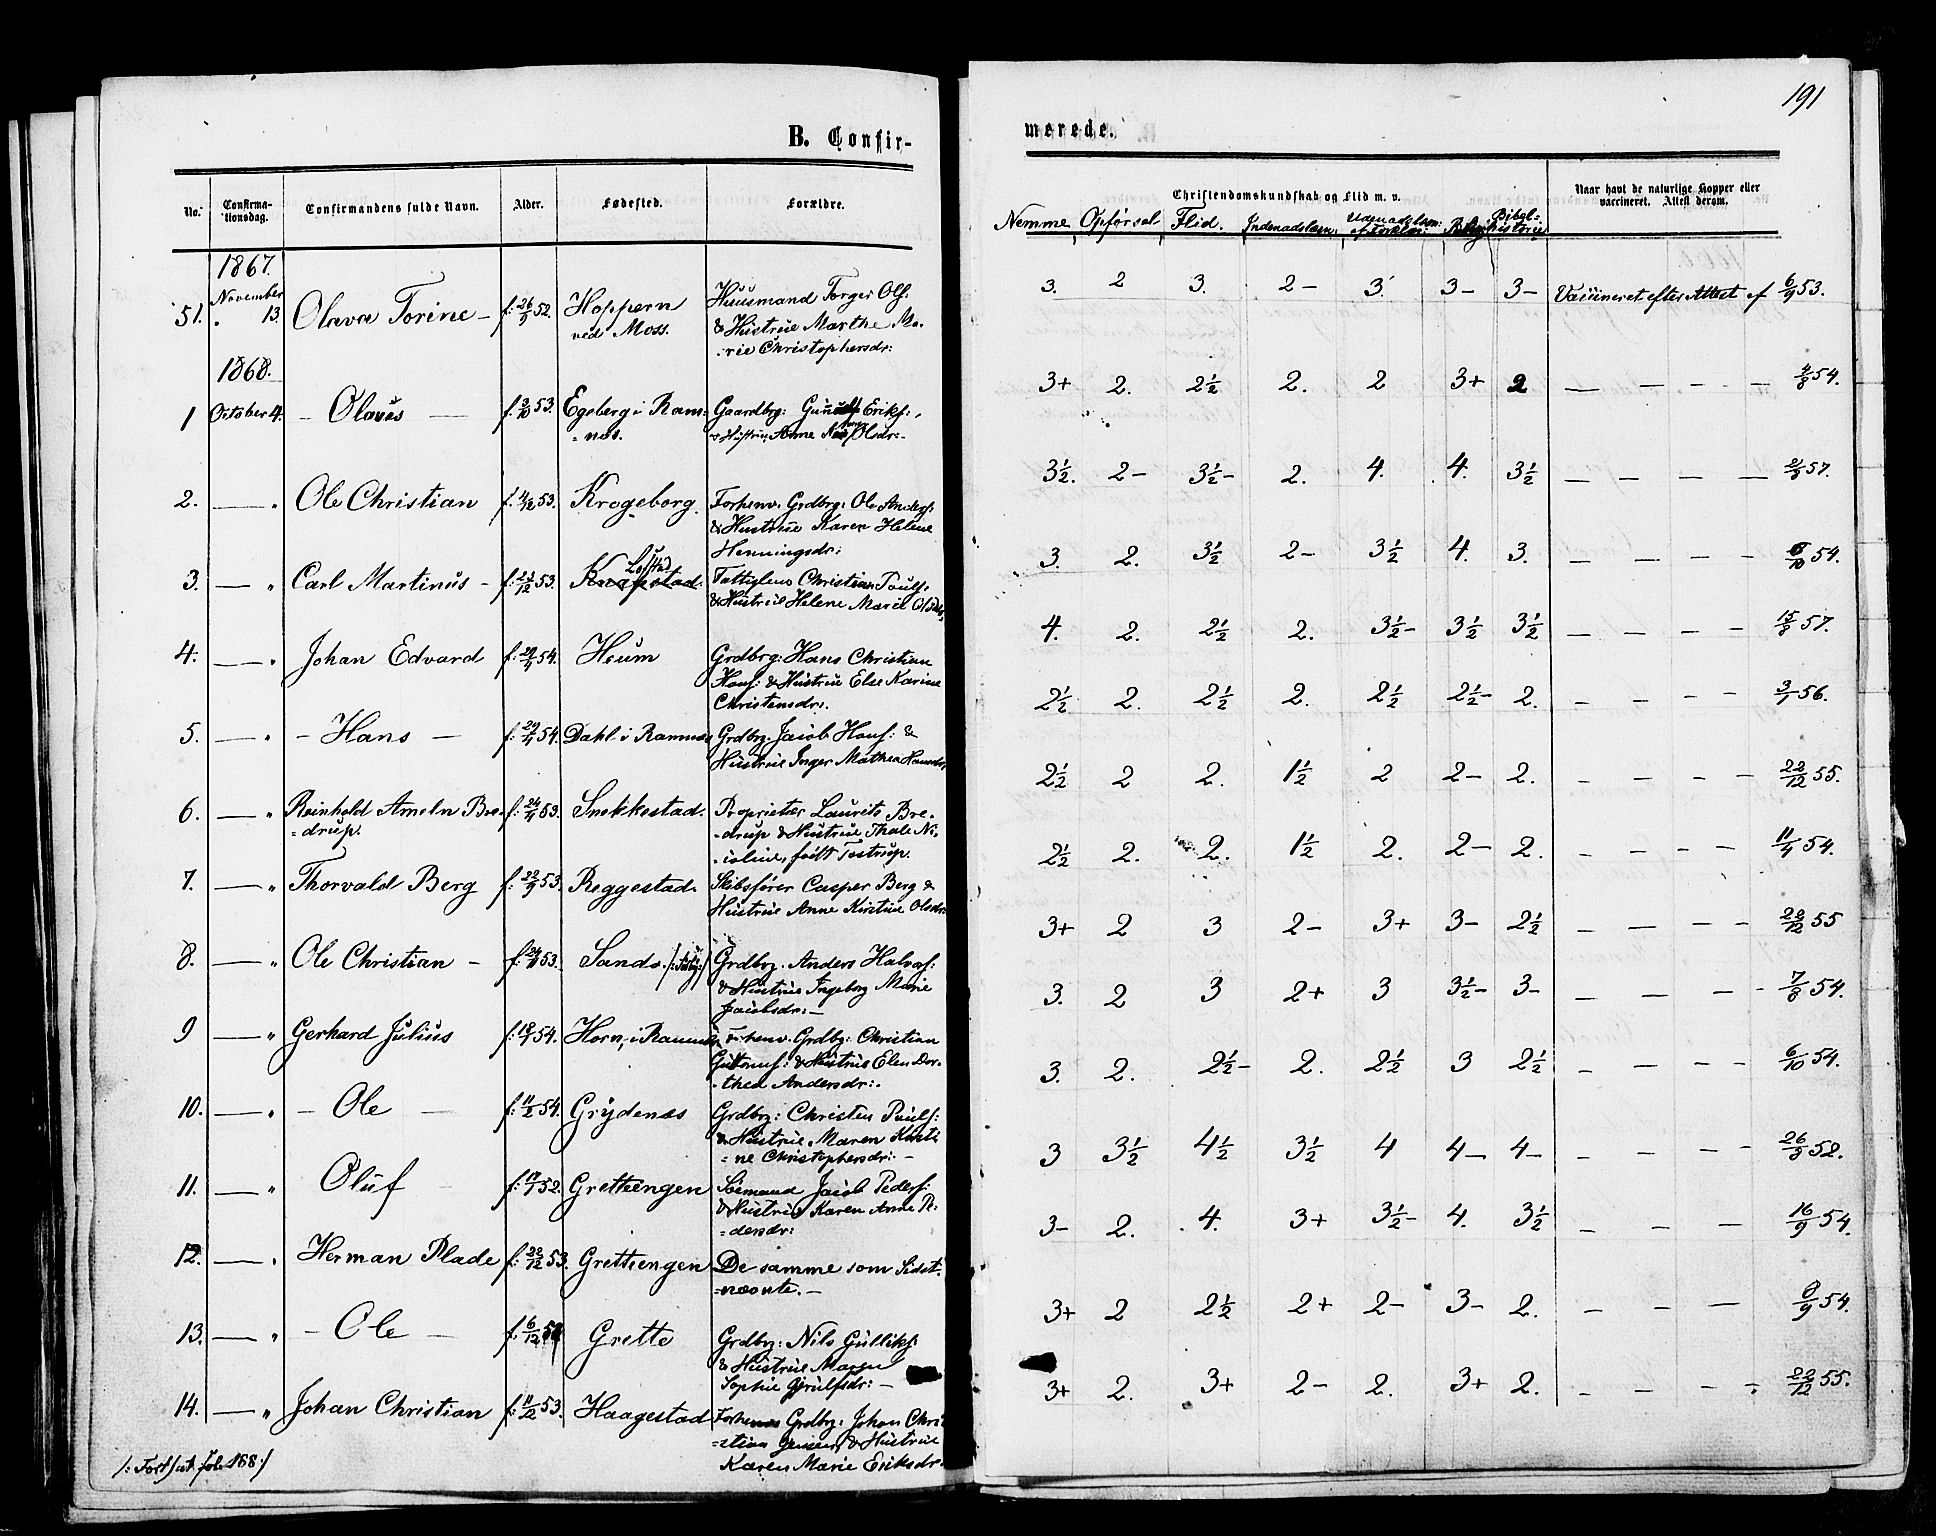 191
B. Confir-
merede.
No.
Confirma-
tionsdag.
Confirmandens fulde Navn.
Alder.
Fødested.
Forældre.
Christendomskundskab og Flid m. v.
Naar havt de naturlige Kopper eller
vaccineret. Attest derom.
Nemme Opførsel Flid. Indenadslæsn:
histories
1867.
November
51. " 13. Olava Torine - f: 26/9 52. Hoppern
ved Moss.
Huusmand Torger Ols:
& Hustrue Marthe Ma-
-rie Christophersdr:
3. 2 3. 2- 3. 3- 3- Vaccineret efter Attest af 6/9 53.
1868.
1 October 4. - Olaus - f: 3/10 53. Egeberg i Ram-
=næs.
Gaardbrg: Eriks:,
& Hustrue Anne Olsdr:-
3+ 2. 2½ 2. 2 3+ 2 — — - - 2/8 54.
2. — " Ole Christian f. 4/12 53. Krogeborg.
Forhenv. Grdbrg: Ole Anders:
& Hustrue Karen Helene
Henningsdr:
3½. 2- 3½- 2. 4. 4. 3½ — — — — 2/9 57.
3. — " Carl Martinus - f: 53. Krogstad.
Christian Pouls:
& Hustrue Helene Marie Olsdr:
3. 2. 3½ 2- 3½ 4. 3. - - - - 6/10 54.
4. — " Johan Edvard f: 54. Heum
Grdbrg: Hans Christian
Hans: & Hustrue Else Karine
Christensdr:.
4. 2. 2½ 2. 3½- 3½ 3½ - - - - 15/8 57.
5. — " - Hans - f: 29/4 54. Dahl i Ramnæs
Grdbrg. Jacob Hans: &
Hustrue Inger Mathea Hansdr:
2½ 2. 2½ 2. 2½ 2½- 2. - - - - 3/7 56.
6. — " Reinhold Ameln Bre-
=drup.
f: 24/4 53. Snekkestad.
Proprietær Laurits Bre-
-drup & Hustrue Thale Ni-
-coline, født Testrup.
2½ 2 2. 1½ 2 2- 2. - - - - 22/12 55.
7. — " Thorvald Berg f: 22/9 53. Reggestad.
Skibsfører Casper Berg &
Hustrue Anne Kirstine Olsdr:
2½ 2. 2. 1½ 2. 2- 2. - - - - 11/4 54.
8. — " Ole Christian - f: 53. Sando.
Grdbrg. Anders Halvors:
& Hustrue Ingeborg Marie
Jacobsdr:-
3+ 2 3 2- 3+ 3- 2½ - - - - 22/12 55
9 — " Gerhard Julius f: 54. Horn, i Ramnæs
Forhenv. Grdbrg: Christian
& Hustrue Elen Dor-
-thea Andersdr:.
3. 2 3 2+ 3 3½- 3- - - - - 7/8 54.
10. — " - Ole - f: 11/2 54. Grydenæs
Grdbrg: Christen Pouls:
& Hustrue Maren Kirsti
=ne Christophersdr:-
3. 2. 2½- 2. 2½ 3 2½ - - - - 6/10 54.
11. — " Oluf - 52. Grettengen
Sømand Jacob Peders:
& Hustrue Karen Anne P:
=dersdr:
3 3½ 4½ 3½ 4 4- 4- - - - - 26/8 52.
12. — " Herman Plade f: 22/12 53. Grettengen
De samme som Sidst-
=nævnte.-
3- 2. 4. 3+ 3½- 4. 3½ - - - 16/9 54.
13. — " - Ole - f. 6/12 Grette
Grdbrg: Nils Gulliks:
& Hustrue Maren
Sophie Gjerulfsdr:-
3+ 2 2½ 2+ 2- 3- 2. - - - 54.
14. — " Johan Christian f: 11/12 53. Haagestad
Forhenv. Grdbrg: Johan Chri-
=stian Jensen & Hustrue
Karen Marie Eriksdr.
3+ 2. 3+ 2- 2. 3+ 2. - - - - 22/12 55.
/: Fortsat fol. 188:/